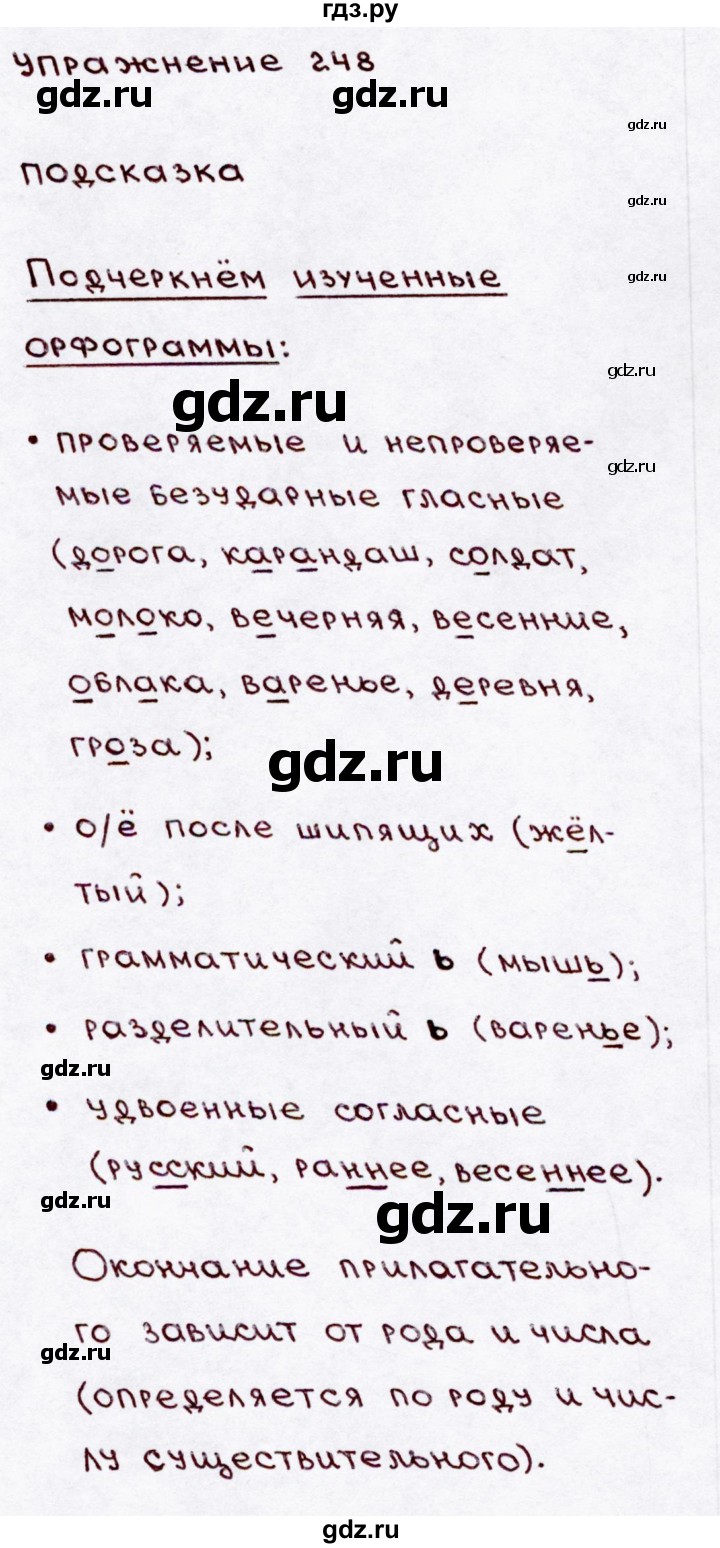 гдз.ру
упражнение 248
gdz.ru gdz.ru
gdz.ru
подсказка
gdz.ru
Подчеркнём изученные
gdz.ru
орфограммы:
gdz.ru
gdz.ru
• проверяемые и непроверяе-
gdz.ru
мые безударные гласные
(дорога, карандаш, солдат,
молоко, вечерняя, весенние,
облака, варенье, деревня,
гроза);
gdz.ru
• о/ё после шипящих (жёл-
тый);
• грамматический ь (мышь);
• разделительный ь (варенье);
gdz.ru
• удвоенные согласные
(русский, раннее, весеннее).
gdz.ru
gdz.ru
Окончание прилагательно-
го зависит от рода и числа
gdz.ru
(определяется по роду и чис-
лу существительного).
gdz.ru